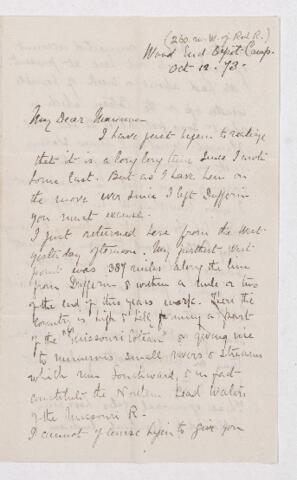 (260 m. W. of Red R.)
Wood End Depot Camp.
Oct 12. 73.
My Dear Mamma
I have just begun to realize
that it is a long long time since I wrote
home last. But as I have been on
the move ever since I left Dufferin
you must excuse.
I just returned here from the West
yesterday afternoon. My furthest West
point was 387 miles along the line
from Dufferin & within a mile or two
of the end of this years work. There the
country is high & hilly forming a part
of the "Missouri Coteau" & giving rise
to numerous small rivers & streams
which run Southward, & in fact
constitute the Northern head waters
of the Missouri R.
I cannot of course begin to give you